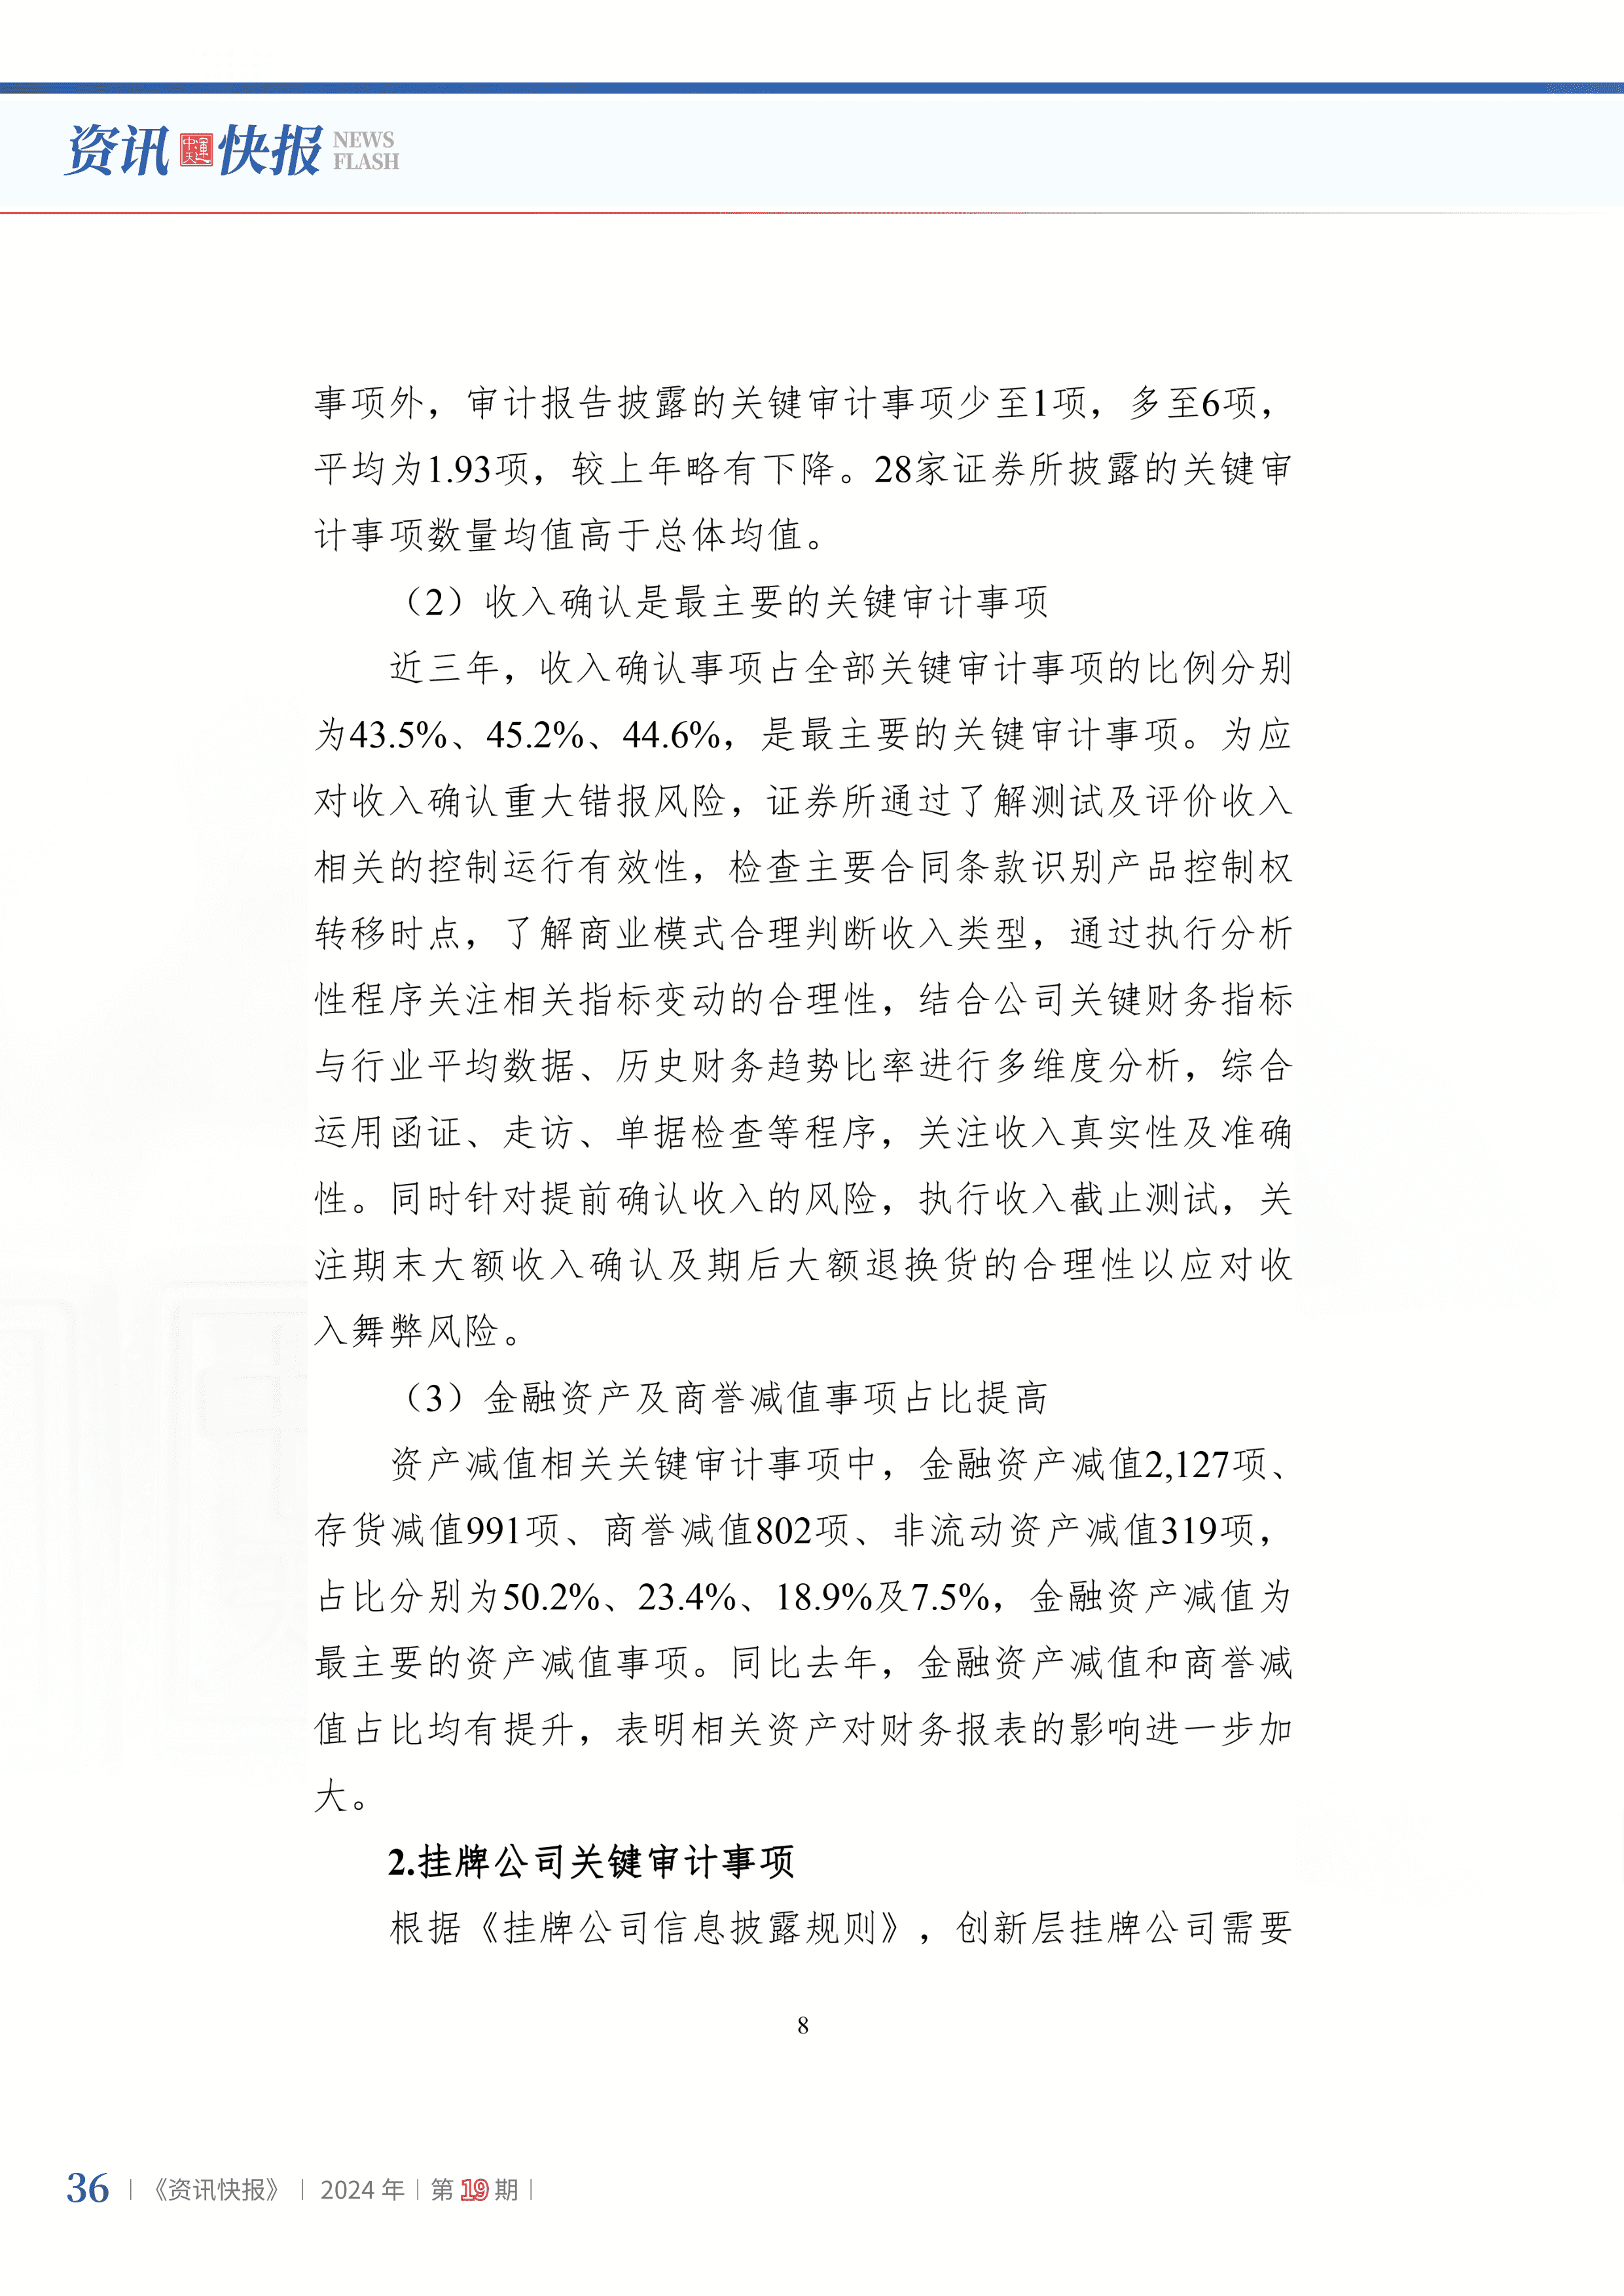 资讯 中天運 快报 NEWS
FLASH
事项外，审计报告披露的关键审计事项少至1项，多至6项，
平均为1.93项，较上年略有下降。28家证券所披露的关键审
计事项数量均值高于总体均值。
（2）收入确认是最主要的关键审计事项
近三年，收入确认事项占全部关键审计事项的比例分别
为43.5%、45.2%、44.6%，是最主要的关键审计事项。为应
对收入确认重大错报风险，证券所通过了解测试及评价收入
相关的控制运行有效性，检查主要合同条款识别产品控制权
转移时点，了解商业模式合理判断收入类型，通过执行分析
性程序关注相关指标变动的合理性，结合公司关键财务指标
与行业平均数据、历史财务趋势比率进行多维度分析，综合
运用函证、走访、单据检查等程序，关注收入真实性及准确
性。同时针对提前确认收入的风险，执行收入截止测试，关
注期末大额收入确认及期后大额退换货的合理性以应对收
入舞弊风险。
（3）金融资产及商誉减值事项占比提高
资产减值相关关键审计事项中，金融资产减值2,127项、
存货减值991项、商誉减值802项、非流动资产减值319项，
占比分别为50.2%、23.4%、18.9%及7.5%，金融资产减值为
最主要的资产减值事项。同比去年，金融资产减值和商誉减
值占比均有提升，表明相关资产对财务报表的影响进一步加
大。
2.挂牌公司关键审计事项
根据《挂牌公司信息披露规则》，创新层挂牌公司需要
8
36 | 《资讯快报》 | 2024 年 | 第 19 期 |